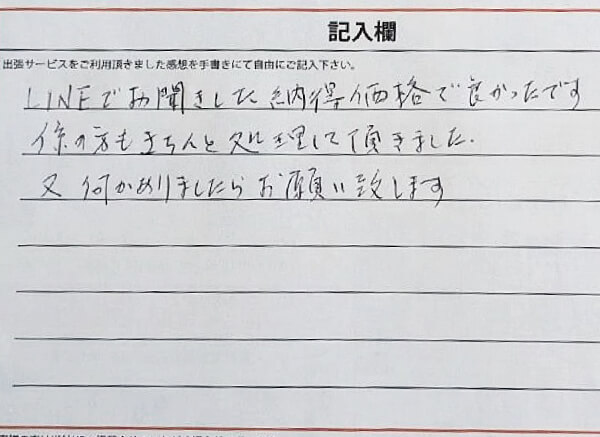 記入欄
出張サービスをご利用頂きました感想を手書きにて自由にご記入下さい。
LINEでお聞きした納得価格で良かったです
係の方もきちんと処理して頂きました.
又何かありましたらお願い致します